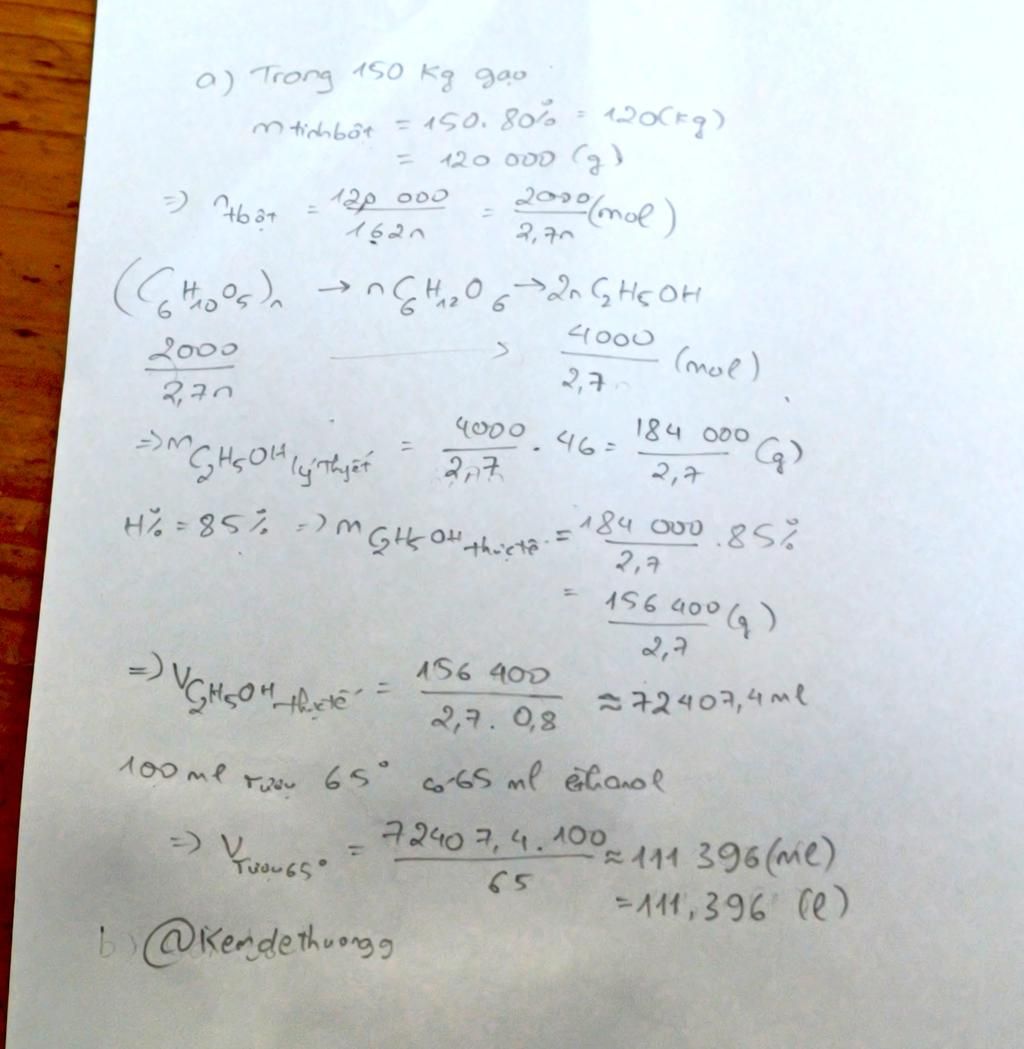 a) Trong 150 kg gạo
m tinh bột = 150. 80% = 120(kg)
= 120 000 (g)
=> n tbột = 120 000 / 162n = 2000 / 2,7n (mol)
(C6H10O5)n → nC6H12O6 → 2nC2H5OH
2000 / 2,7n → 4000 / 2,7 (mol)
=> m C2H5OH lý thyết = 4000 / 2,7 . 46 = 184 000 / 2,7 (g)
H% = 85% => m C2H5OH thực tế = 184 000 / 2,7 . 85%
= 156 400 / 2,7 (g)
=> V C2H5OH thực tế = 156 400 / 2,7. 0,8 ≈ 72407,4 ml
100 ml rượu 65° có 65 ml ethanol
=> V rượu 65° = 72407,4.100 / 65 ≈ 111 396(ml)
= 111,396 (l)
b) @Kemdethuongg